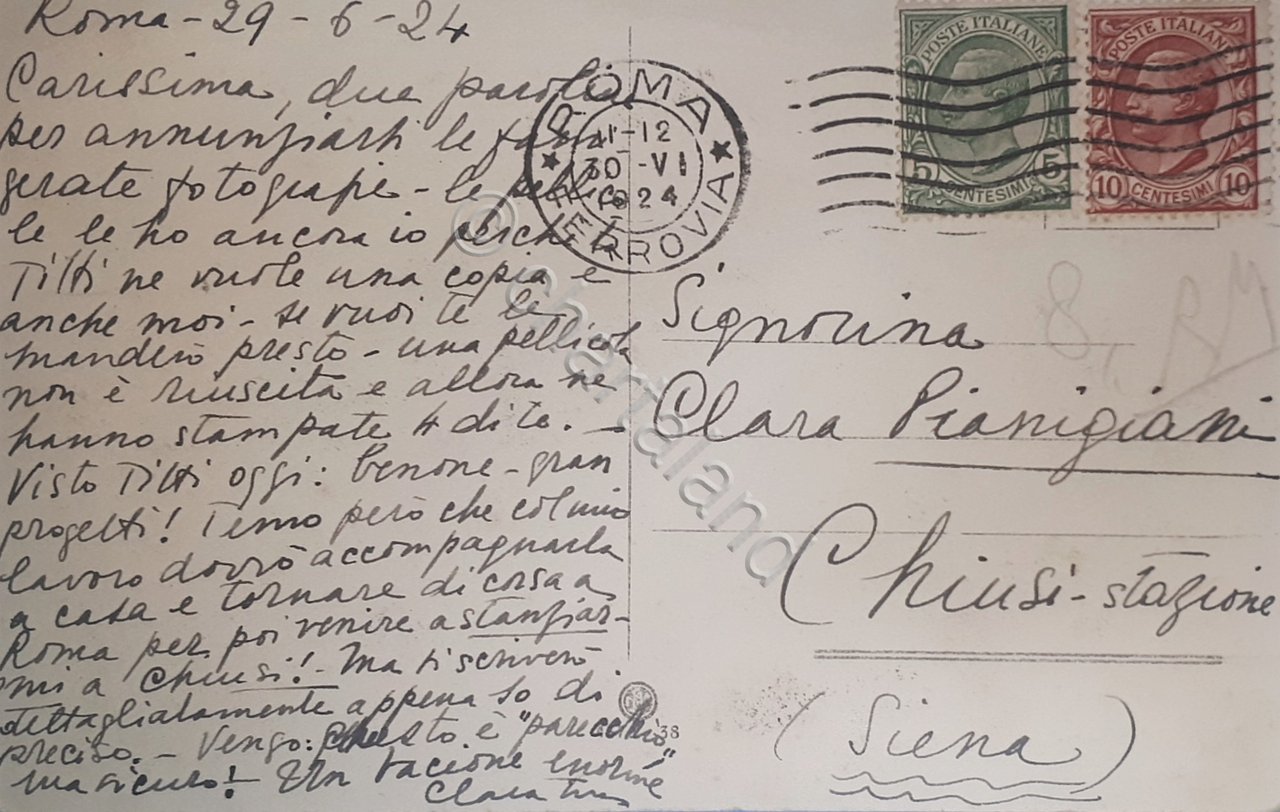 Roma - 29 - 6 - 24
Carissima, due parole
per annunziarti le
gerate fotografie - le pellico
le le ho ancora io perchè
Titti ne vuole una copia e
anche moi - se vuoi te le
manderò presto - una pellicola
non è riuscita e allora ne
hanno stampate 4 di te. -
Visto Titti oggi: benone - gran
progetti! Temo però che col mio
lavoro dovrò accompagnarla
a casa e tornare di corsa a
Roma per poi venire a stanziar-
mi a Chiusi! - Ma ti scriverò
dettagliatamente appena so di
preciso. - Vengo: questo è "parecchio"
ma sicuro! - Un bacione enorme
Clara
ROMA
11-12
30-VI
1924
FERROVIA
POSTE ITALIANE
5 CENTESIMI 5
POSTE ITALIANE
10 CENTESIMI 10
Signorina
Clara Pianigiani
Chiusi - stazione
(Siena)
38
© chartaland